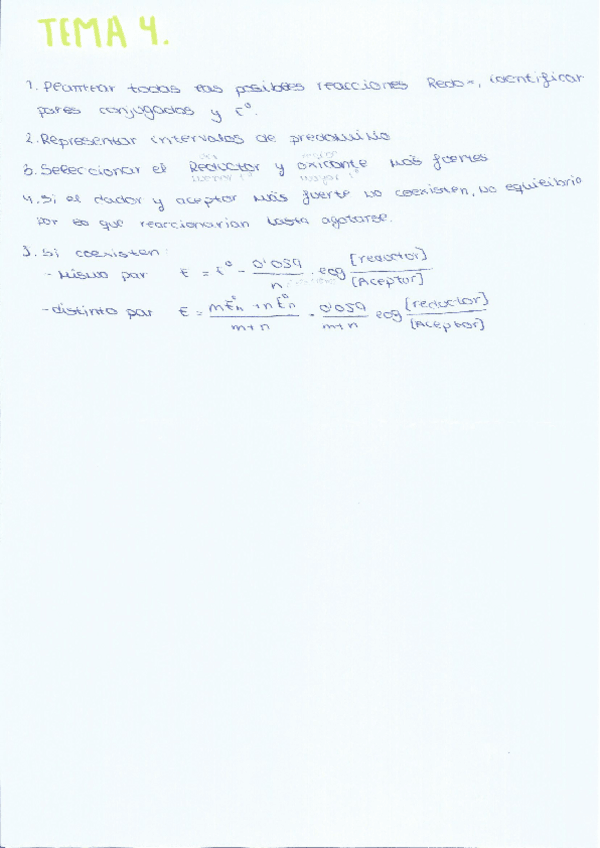 TEMA 4.
1. Plantear todas las posibles reacciones Redox, identificar
pares conjugados y E°.
2. Representar intervalos de predominio
3. Seleccionar el Reductor y oxidante más fuertes
menor E° mayor E°
4. Si el dador y aceptor más fuerte no coexisten, no equilibrio
por lo que reaccionarían hasta agotarse.
3. Si coexisten:
- Mismo par E = E° - 0'059/n · log [reductor]/[Aceptor]
- distinto par E = mE°n + nE°n/m+n - 0'059/m+n log [reductor]/[Aceptor]